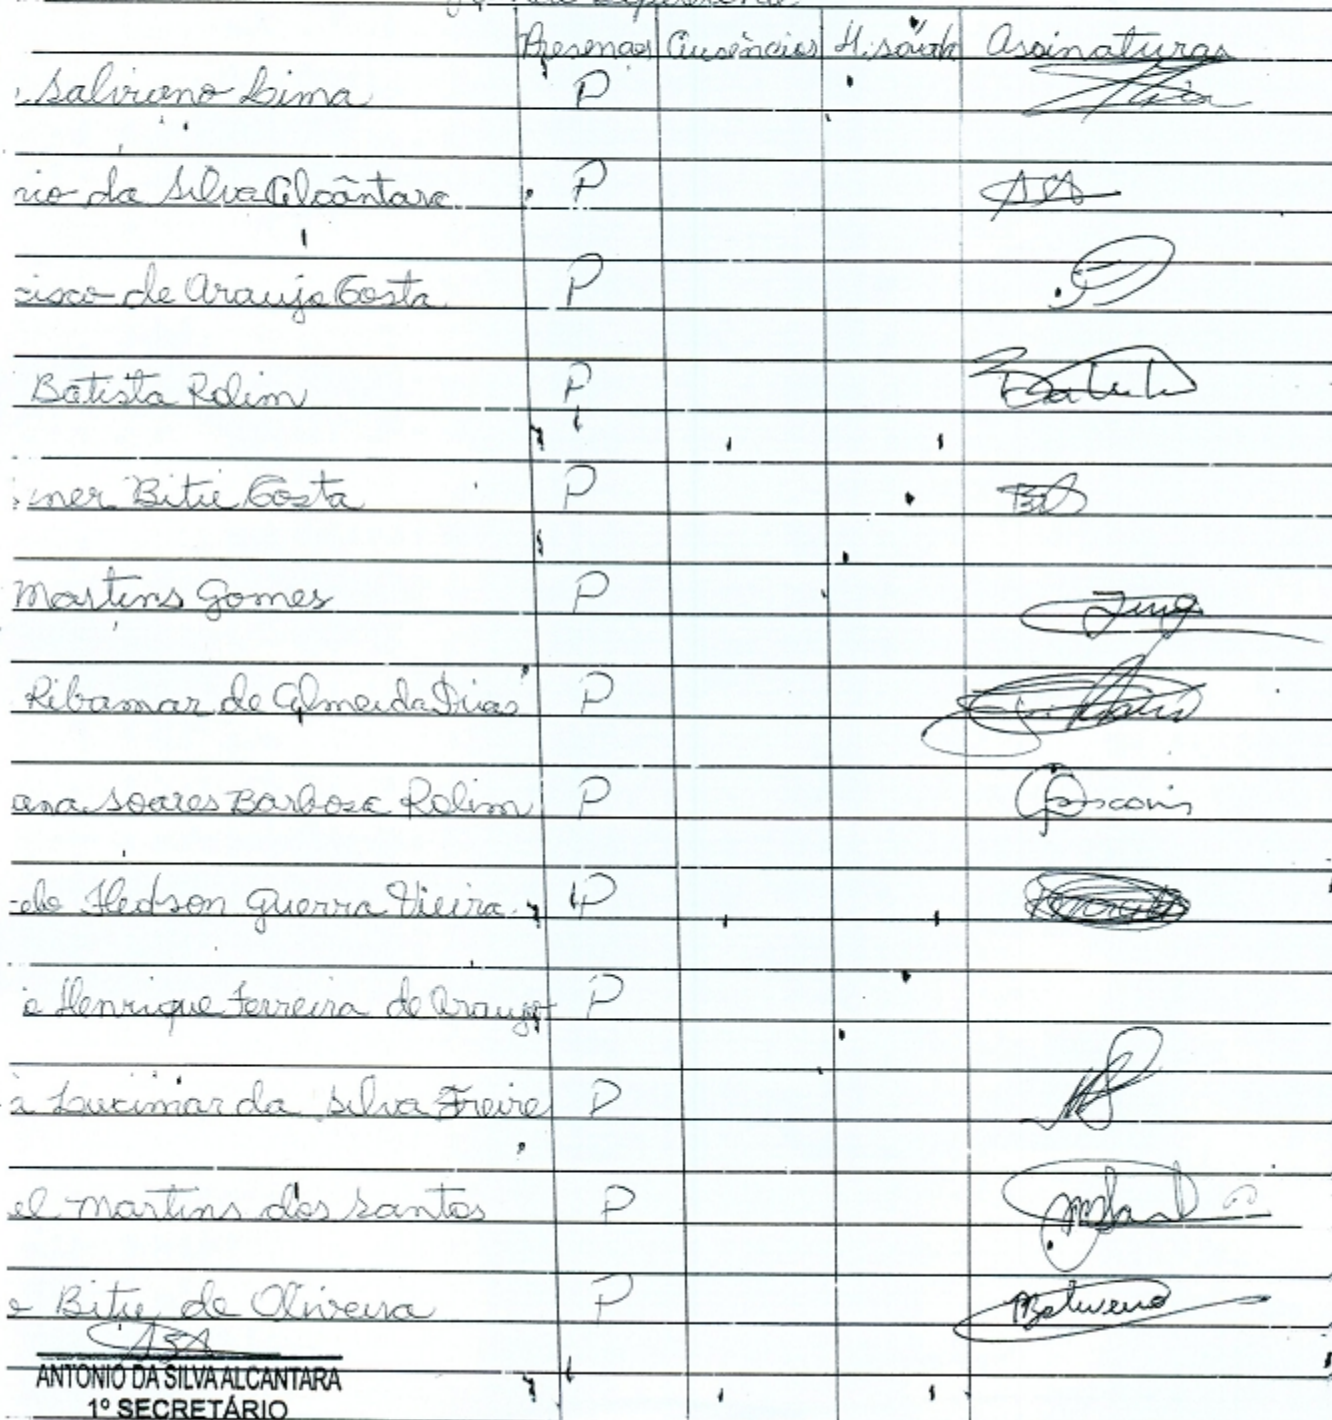 Presenças Ausências H. saída Assinaturas
Salviano Lima P
nio da Silva Alcântara P
cisco de Araujo Costa P
Batista Rolim P Batista
iner Bitu Costa P
Martins Gomes P
Ribamar de Almeida Dias P
ana Soares Barbosa Rolim P
elo Hedson Guerra Vieira P
o Henrique Ferreira de Araujo P
a Lucimar da Silva Freire P
el Martins dos Santos P
o Bitu de Oliveira P
ANTONIO DA SILVA ALCANTARA
1º SECRETÁRIO